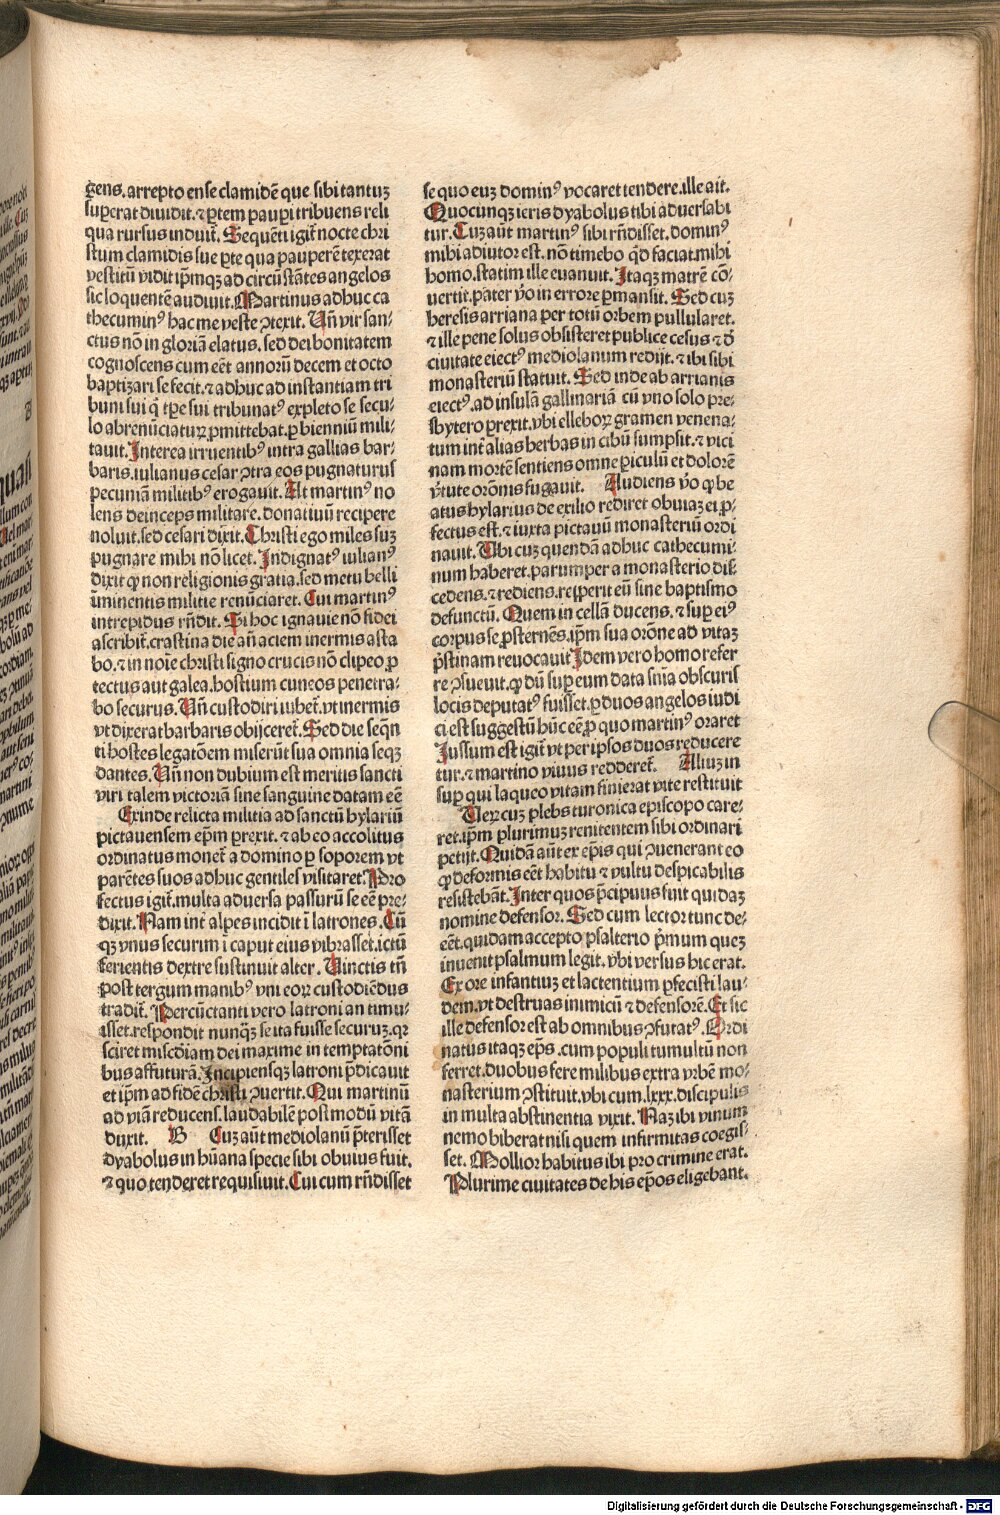 gens. arrepto ense clamidē que sibi tantuʒ
superat diuidit. ⁊ ꝑtem pauꝑi tribuens reli
qua rursus induit̄. Sequēti igit̄ nocte chri
stum clamidis sue ꝑte qua pauperē texerat
vestitū vidit ip̄mqʒ ad circūstātes angelos
sic loquentē audiuit. Martinus adhuc ca
thecuminꝰ hac me veste ꝯtexit. Un̄ vir san⸗
ctus nō in gloriā elatus. sed dei bonitatem
cognoscens cum eēt annorū decem et octo
baptizari se fecit. ⁊ adhuc ad instantiam tri
buni sui q̄ tp̄e sui tribunatꝰ expleto se secu⸗
lo abrenūciaturꝝ ꝓmittebat. ꝑ bienniū mili⸗
tauit. Interea irruentibꝰ intra gallias bar⸗
baris. iulianus cesar ꝯtra eos pugnaturus
pecuniā militibꝰ erogauit. At martinꝰ no
lens deinceps militare. donatiuū recipere
noluit. sed cesari dixit. Christi ego miles suʒ
pugnare mihi nō licet. Indignatꝰ iulianꝰ
dixit ꝙ non religionis gratia. sed metu belli
ūminentis militie renūciaret. Cui martinꝰ
intrepidus rn̄dit. Si hoc ignauie nō fidei
ascribit̄. crastina die an̄ aciem inermis asta
bo. ⁊ in noīe christi signo crucis nō clipeo ꝓ
tectus aut galea. hostium cuneos penetra⸗
bo securus. Un̄ custodiri iubet̄. vt inermis
vt dixerat barbaris obijceret̄. Sed die seqn̄
ti hostes legatōem miserūt sua omnia seqʒ
dantes. Un̄ non dubium est meritis sancti
viri talem victoriā sine sanguine datam eē
Exinde relicta militia ad sanctū hylariū
pictauensem ep̄m ꝑrexit. ⁊ ab eo accolitus
ordinatus monet̄ a domino ꝑ soporem vt
parētes suos adhuc gentiles visitaret. Pro
fectus igit̄. multa aduersa passurū se eē pre⸗
dixit. Nam int̄ alpes incidit ī latrones. Cū
qʒ vnus securim ī caput eius vibrasset. ictū
ferientis dextre sustinuit alter. Uinctis tn̄
post tergum manibꝰ vni eoꝝ custodiēdus
tradit̄. Percūctanti vero latroni an timu⸗
isset. respondit nunqʒ se ita fuisse securuʒ. qꝛ
sciret misc̄diam dei maxime in temptatōni
bus affuturā. Incipiensqʒ latroni p̄dicauit
et ip̄m ad fidē christi ꝯuertit. Qui martinū
ad viā reducens. laudabilē postmodū vitā
duxit. B Cuʒ aūt mediolanū p̄terisset
dyabolus in hūana specie sibi obuius fuit.
⁊ quo tenderet requisiuit. Cui cum rn̄disset
se quo euʒ dominꝰ vocaret tendere. ille ait.
Quocunqʒ ieris dyabolus tibi aduersabi
tur. Cuʒ aūt martinꝰ sibi rn̄disset. dominꝰ
mihi adiutor est. nō timebo qd̄ faciat mihi
homo. statim ille euanuit. Itaqʒ matrē cō⸗
uertit. pater v̄o in errore ꝑmansit. Sed cuʒ
heresis arriana per totū orbem pullularet.
⁊ ille pene solus obsisteret publice cesus ⁊ d̄
ciuitate eiectꝰ mediolanum redijt. ⁊ ibi sibi
monasteriū statuit. Sed inde ab arrianis
eiectꝰ. ad insulā gallinariā cū vno solo pre⸗
sbytero ꝑrexit. vbi elleboꝝ gramen venena⸗
tum int̄ alias herbas in cibū sumpsit. ⁊ vici
nam mortē sentiens omne ꝑiculū et dolorē
v̄tute orōnis fugauit. Audiens v̄o ꝙ be
atus hylarius de exilio rediret obuiaʒ ei ꝓ⸗
fectus est. ⁊ iuxta pictauū monasteriū ordi
nauit. Ubi cuʒ quendā adhuc cathecumi⸗
num haberet. parumper a monasterio dis̄
cedens. ⁊ rediens. reꝑperit eū sine baptismo
defunctū. Quem in cellā ducens. ⁊ suꝑ eiꝰ
corpus se ꝓsternēs. ip̄m sua orōne ad vitaʒ
p̄stinam reuocauit Idem vero homo refer
re ꝯsueuit. ꝙ dū suꝑ eum data snīa obscuris
locis deputatꝰ fuisset. ꝑ duos angelos iudi
ci est suggestū hūc eē ꝓ quo martinꝰ oraret
Jussum est igit̄ vt per ipsos duos reducere
tur. ⁊ martino viuus redderet̄. Aliuʒ in
suꝑ qui laqueo vitam finierat vite restituit
Ueꝝ cuʒ plebs turonica episcopo care⸗
ret. ip̄m plurimuʒ renitentem sibi ordinari
petijt. Quidā aūt ex ep̄is qui ꝯuenerant eo
ꝙ deformis eēt habitu ⁊ vultu despicabilis
resistebāt. Inter quos p̄cipuus fuit quidaʒ
nomine defensor. Sed cum lector tunc de⸗
eēt. quidam accepto psalterio p̄mum queʒ
inuenit psalmum legit. vbi versus hic erat.
Ex ore infantiuʒ et lactentium ꝑfecisti lau⸗
dem. vt destruas inimicū ⁊ defensorē. Et sic
ille defensor est ab omnibus ꝯfutatꝰ. Ordi
natus itaqʒ ep̄s. cum populi tumultū non
ferret. duobus fere milibus extra vrbē mo⸗
nasterium ꝯstituit. vbi cum .lxxx. discipulis
in multa abstinentia vixit. Naʒ ibi vinum
nemo biberat nisi quem infirmitas coegis⸗
set. Mollior habitus ibi pro crimine erat.
Plurime ciuitates de his ep̄os eligebant.
Digitalisierung gefördert durch die Deutsche Forschungsgemeinschaft - DFG